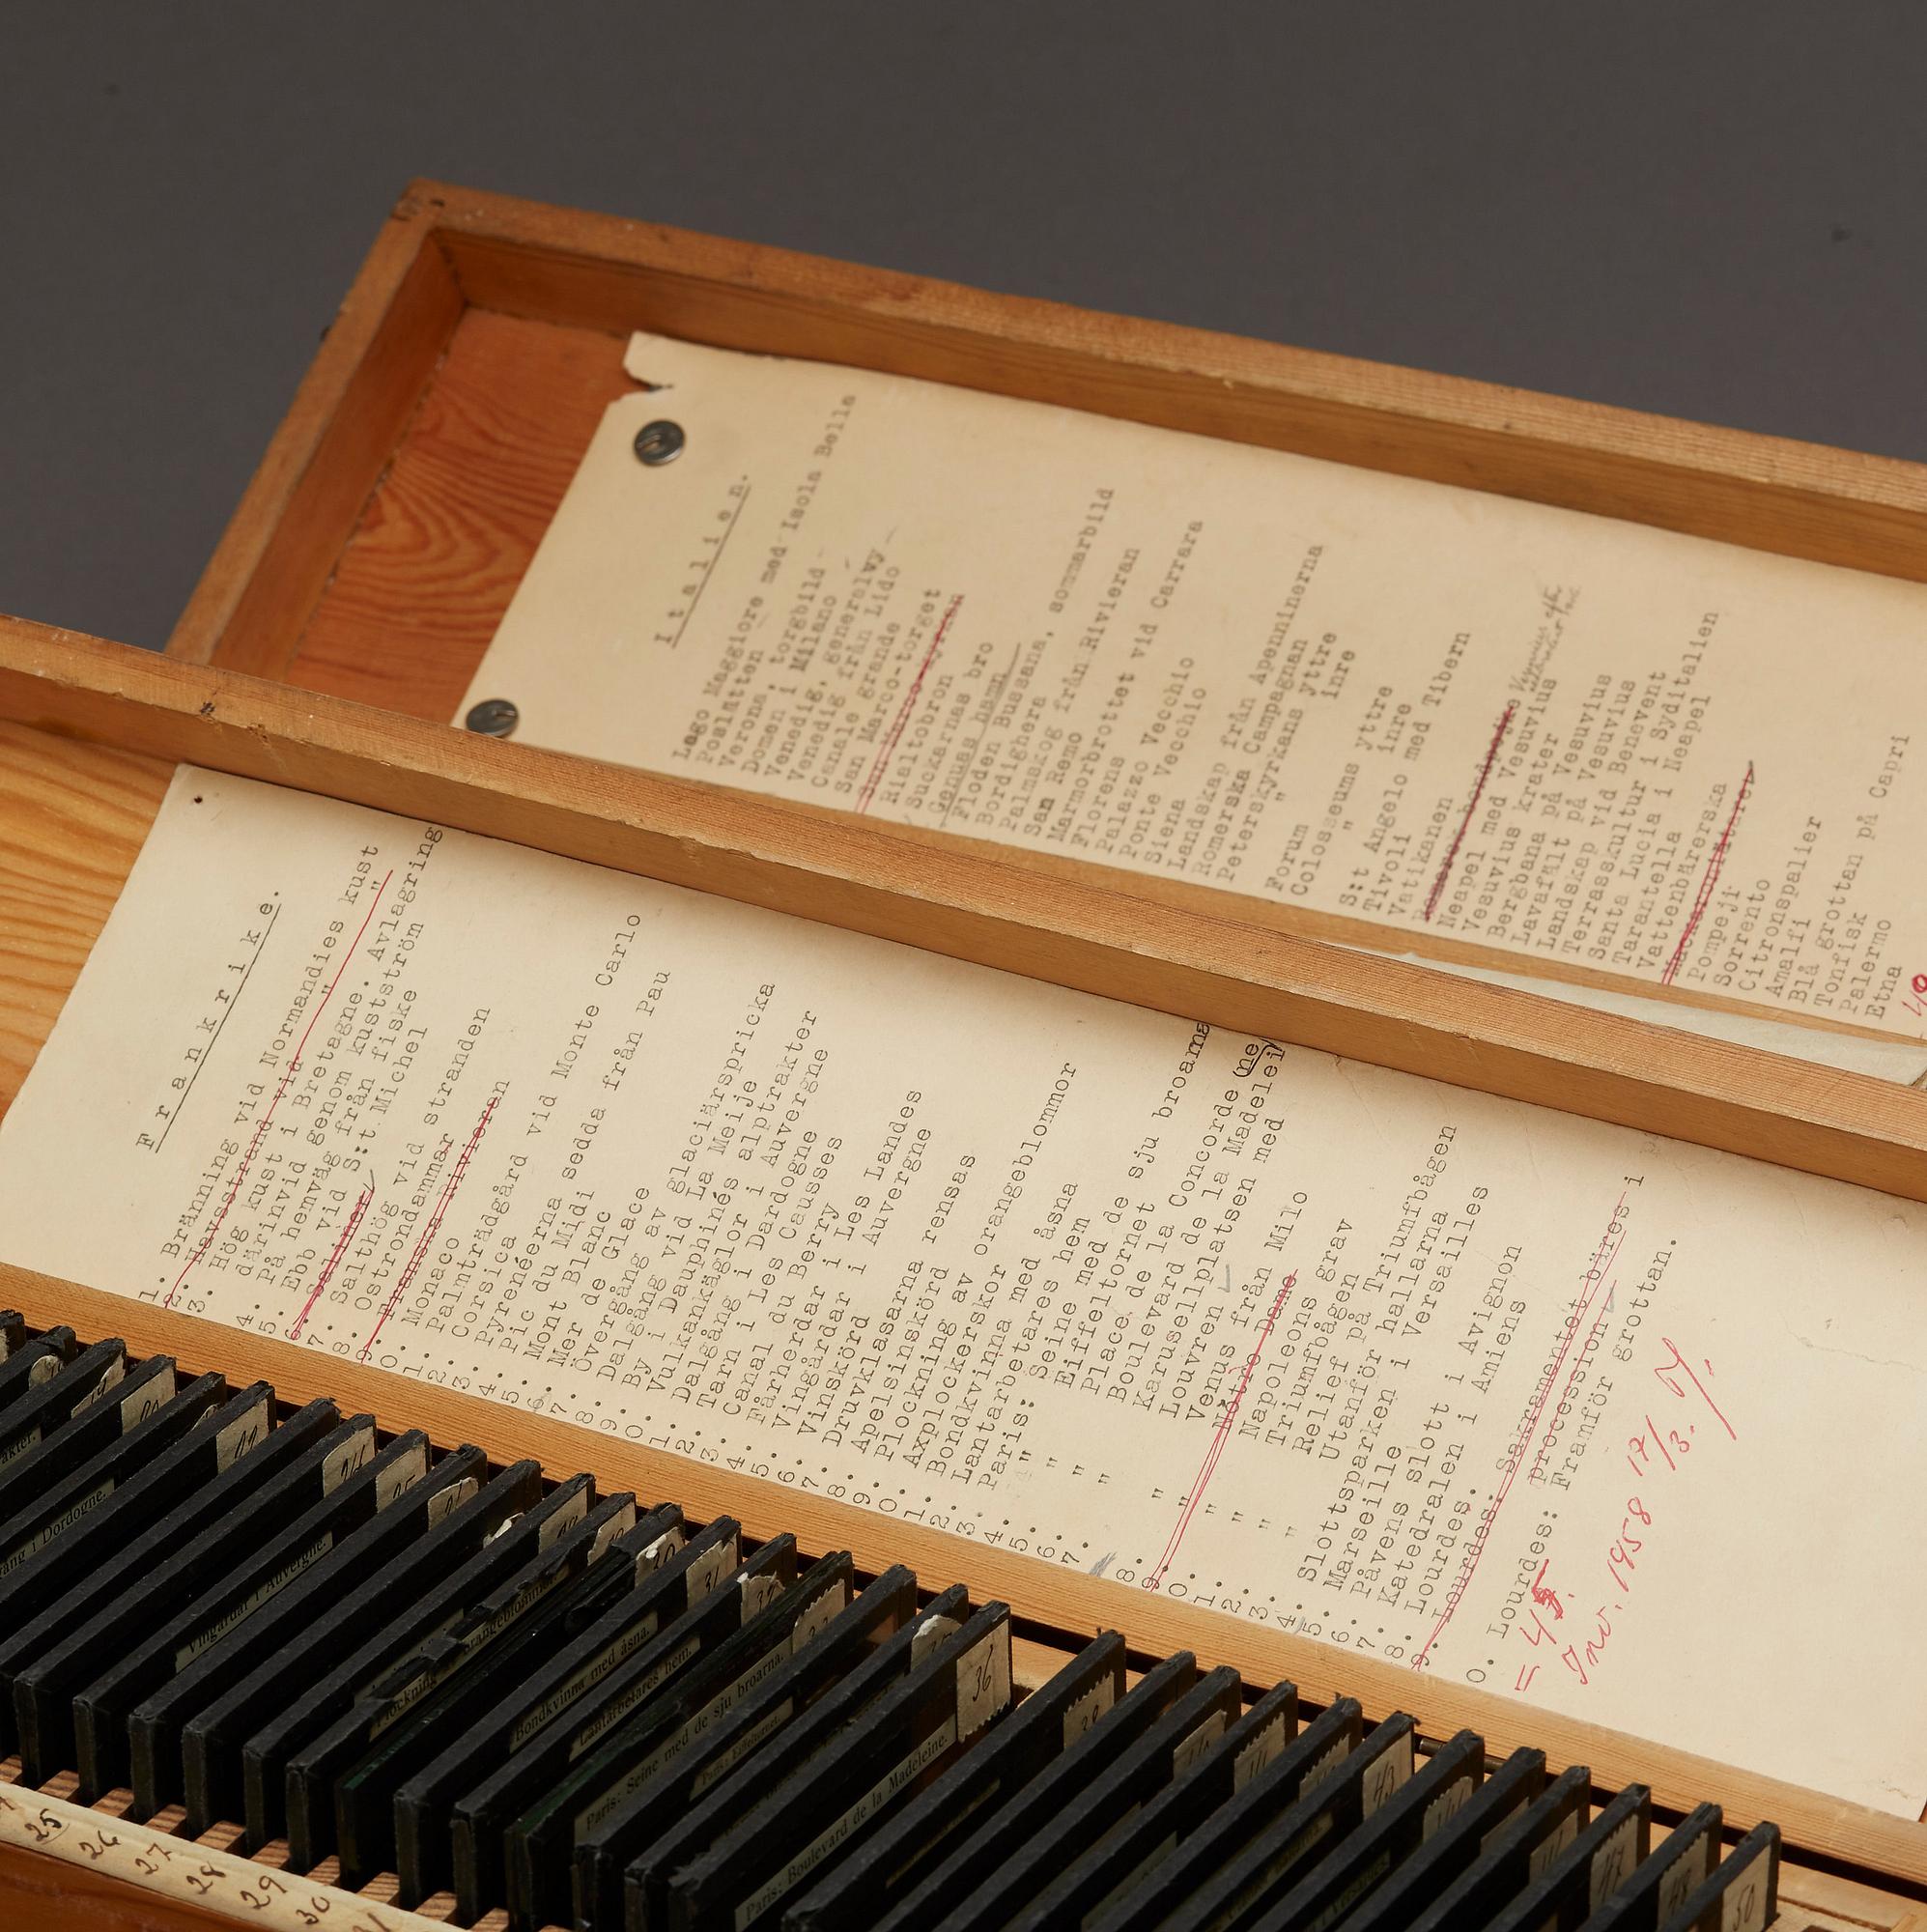 Italien.
Lago Maggiore med Isola Bella
Poslätten
Verona, torgbild
Domen i Milano
Venedig, generalvy
Venedig från Lido
Canale grande
San Marco-torget
San Marco-
Rialtobron
Suckarnas bro
Genuas hamn
Floden Bussana
Bordighera
Palmskog, sommarbild
San Remo från Rivieran
Marmorbrottet vid Carrara
Florens
Palazzo Vecchio
Ponte Vecchio
Siena
Landskap från Apenninerna
Romerska Campagnan
Peterskyrkans yttre
" inre
Forum
Colosseums yttre
" inre
S:t Angelo med Tibern
Tivoli
Vatikanen
Neapel med Vesuvius
Vesuvius krater
Bergbana på Vesuvius
Lavafält på Vesuvius
Landskap vid Benevent
Terrasskultur i Syditalien
Santa Lucia i Neapel
Tarantella
Vattenbärerska
Pompeji
Sorrento
Citronspalier
Amalfi
Blå grottan på Capri
Tonfisk
Palermo
Etna
Frankrike.
1. Bränning vid Normandies kust
2. Havsstrand vid " "
3. Hög kust i Bretagne. Avlagring
därinvid genom kustström
4. På hemväg från fiske
5. Ebb vid S:t Michel
6. Saliner
7. Salthög vid stranden
8. Ostrondammar
9. Franska Rivieran
0. Monaco
1. Palmträdgård vid Monte Carlo
2. Corsica
3. Pyrenéerna sedda från Pau
4. Pic du Midi
5. Mont Blanc
6. Mer de Glace
7. Övergång av glaciärspricka
8. Dalgång vid La Meije
9. By i Dauphinés alptrakter
0. Vulkankäglor i Auvergne
1. Dalgång i Dardogne
2. Tarn i Les Causses
3. Canal du Berry
4. Fårherdar i Les Landes
5. Vingårdar i Auvergne
6. Vinskörd
7. Druvklasarna rensas
8. Apelsinskörd
9. Plockning av orangeblommor
0. Axplockerskor
1. Bondkvinna med åsna
2. Lantarbetares hem
3. Paris: Seine med de sju broarna
4. " Eiffeltornet
5. " Place de la Concorde (ne
6. " Boulevard de la Madelei)
7. " Karusellplatsen med
Louvren
8. " Venus från Milo
9. " Nôtre Dame
0. " Napoleons grav
1. " Triumfbågen
2. " Relief på Triumfbågen
3. " Utanför hallarna
4. Slottsparken i Versailles
5. Marseille
6. Påvens slott i Avignon
7. Katedralen i Amiens
8. Lourdes.
9. Lourdes. Sakramentet bäres i
procession
0. Lourdes: Framför grottan.
= 45.
Inv. 1958 17/3.
Vingårdar i Auvergne.
Bondkvinna med åsna.
Lantarbetares hem.
Paris: Seine med de sju broarna.
Paris: Eiffeltornet.
Paris: Boulevard de la Madeleine.
31
36
43
50
25
26
27
28
29
30
31